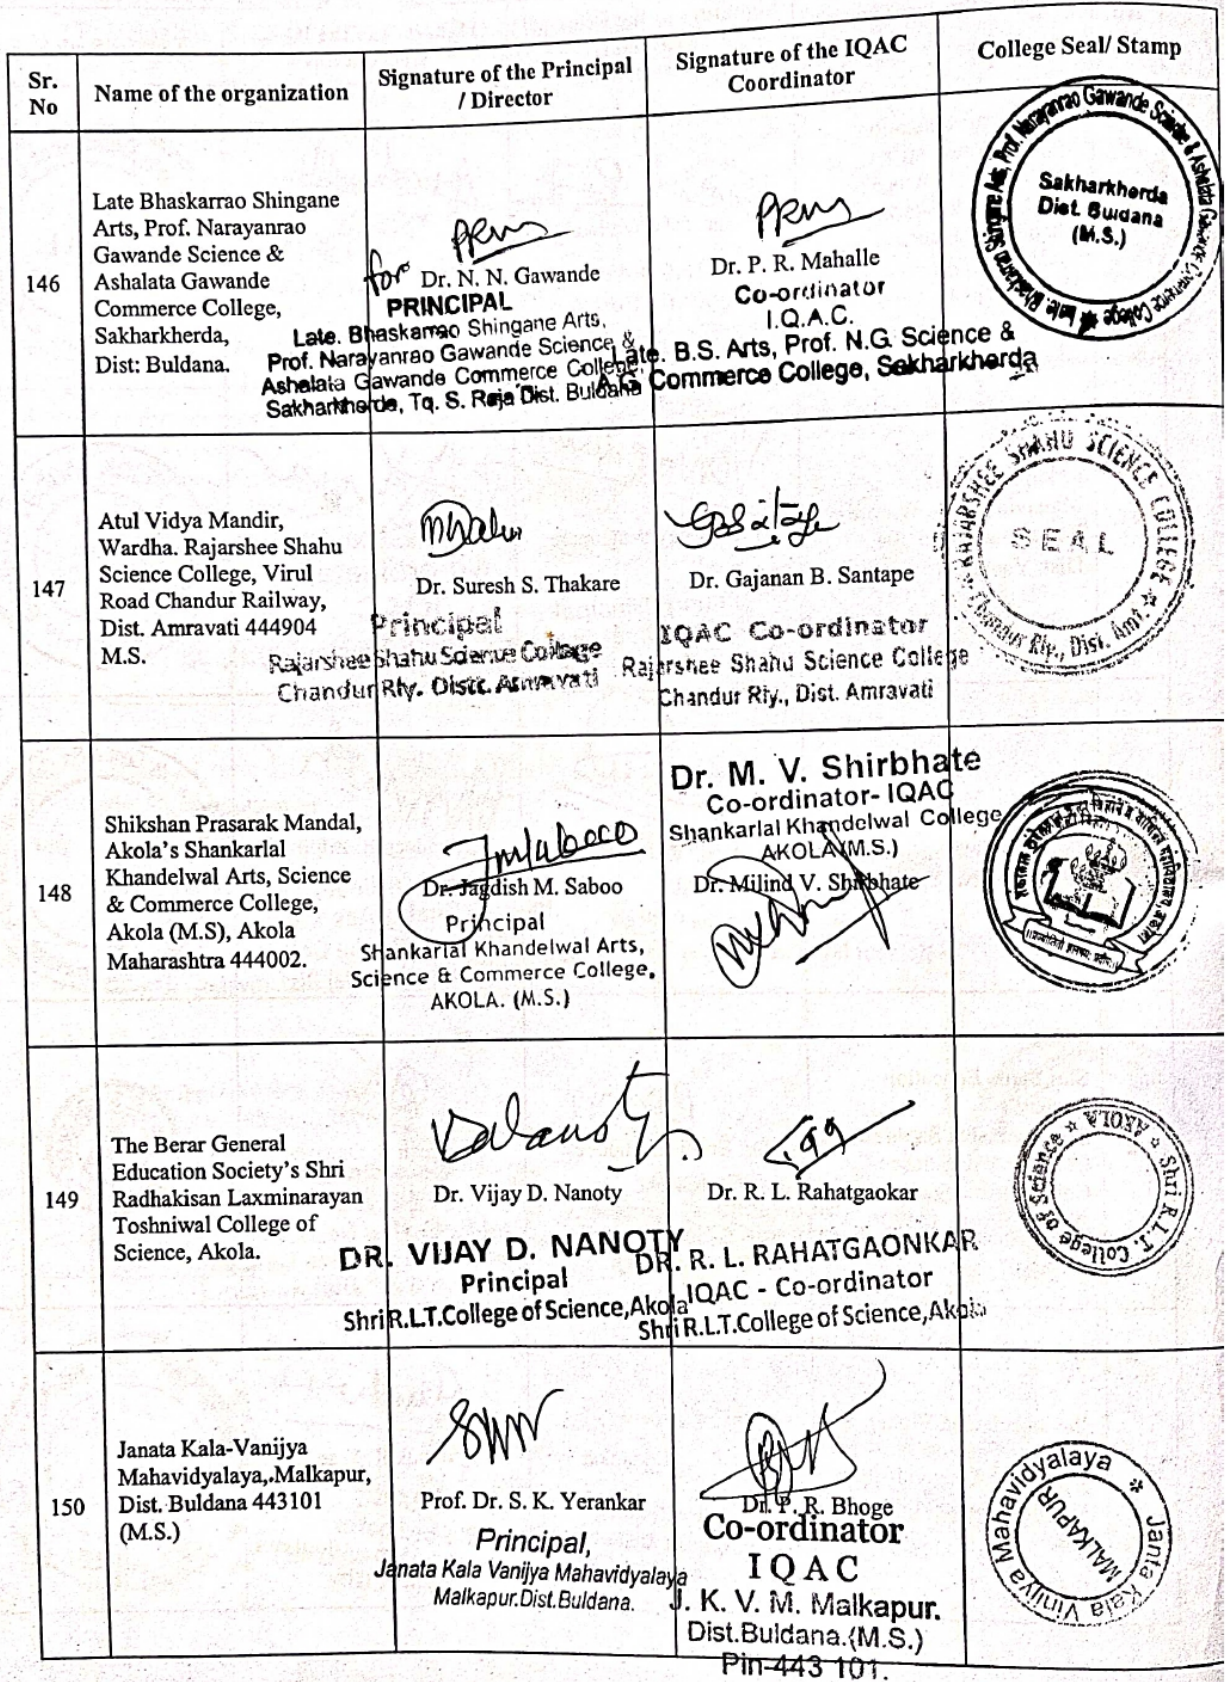 Sr.
No
Name of the organization
Signature of the Principal
/ Director
Signature of the IQAC
Coordinator
College Seal/ Stamp
146
Late Bhaskarrao Shingane
Arts, Prof. Narayanrao
Gawande Science &
Ashalata Gawande
Commerce College,
Sakharkherda,
Dist: Buldana.
for
Dr. N. N. Gawande
PRINCIPAL
Late. Bhaskarrao Shingane Arts,
Prof. Narayanrao Gawande Science &
Ashalata Gawande Commerce College,
Sakharkherda, Tq. S. Raja Dist. Buldana
Dr. P. R. Mahalle
Co-ordinator
I.Q.A.C.
Late. B.S. Arts, Prof. N.G. Science &
A.G. Commerce College, Sakharkherda
Late. Bhaskarrao Shingane Arts, Prof. Narayanrao Gawande Science & Ashalata Gawande Commerce College
Sakharkherda
Dist. Buldana
(M.S.)
147
Atul Vidya Mandir,
Wardha. Rajarshee Shahu
Science College, Virul
Road Chandur Railway,
Dist. Amravati 444904
M.S.
Dr. Suresh S. Thakare
Principal
Rajarshee Shahu Science College
Chandur Rly. Distt. Amravati
Dr. Gajanan B. Santape
IQAC Co-ordinator
Rajarshee Shahu Science College
Chandur Rly., Dist. Amravati
RAJARSHEE SHAHU SCIENCE COLLEGE
SEAL
Chandur Rly., Dist. Amt.
148
Shikshan Prasarak Mandal,
Akola's Shankarlal
Khandelwal Arts, Science
& Commerce College,
Akola (M.S), Akola
Maharashtra 444002.
Dr. Jagdish M. Saboo
Principal
Shankarlal Khandelwal Arts,
Science & Commerce College,
AKOLA. (M.S.)
Dr. M. V. Shirbhate
Co-ordinator- IQAC
Shankarlal Khandelwal College
AKOLA(M.S.)
Dr. Milind V. Shirbhate
149
The Berar General
Education Society's Shri
Radhakisan Laxminarayan
Toshniwal College of
Science, Akola.
Dr. Vijay D. Nanoty
DR. VIJAY D. NANOTY
Principal
Shri R.L.T.College of Science,Akola
Dr. R. L. Rahatgaokar
DR. R. L. RAHATGAONKAR
IQAC - Co-ordinator
Shri R.L.T.College of Science,Akola
Shri R.L.T. College of Science
AKOLA
150
Janata Kala-Vanijya
Mahavidyalaya,.Malkapur,
Dist. Buldana 443101
(M.S.)
Prof. Dr. S. K. Yerankar
Principal,
Janata Kala Vanijya Mahavidyalaya
Malkapur.Dist.Buldana.
Dr. P. R. Bhoge
Co-ordinator
IQAC
J. K. V. M. Malkapur.
Dist.Buldana.(M.S.)
Pin-443 101.
Janta Kala Vinijya Mahavidyalaya
MALKAPUR